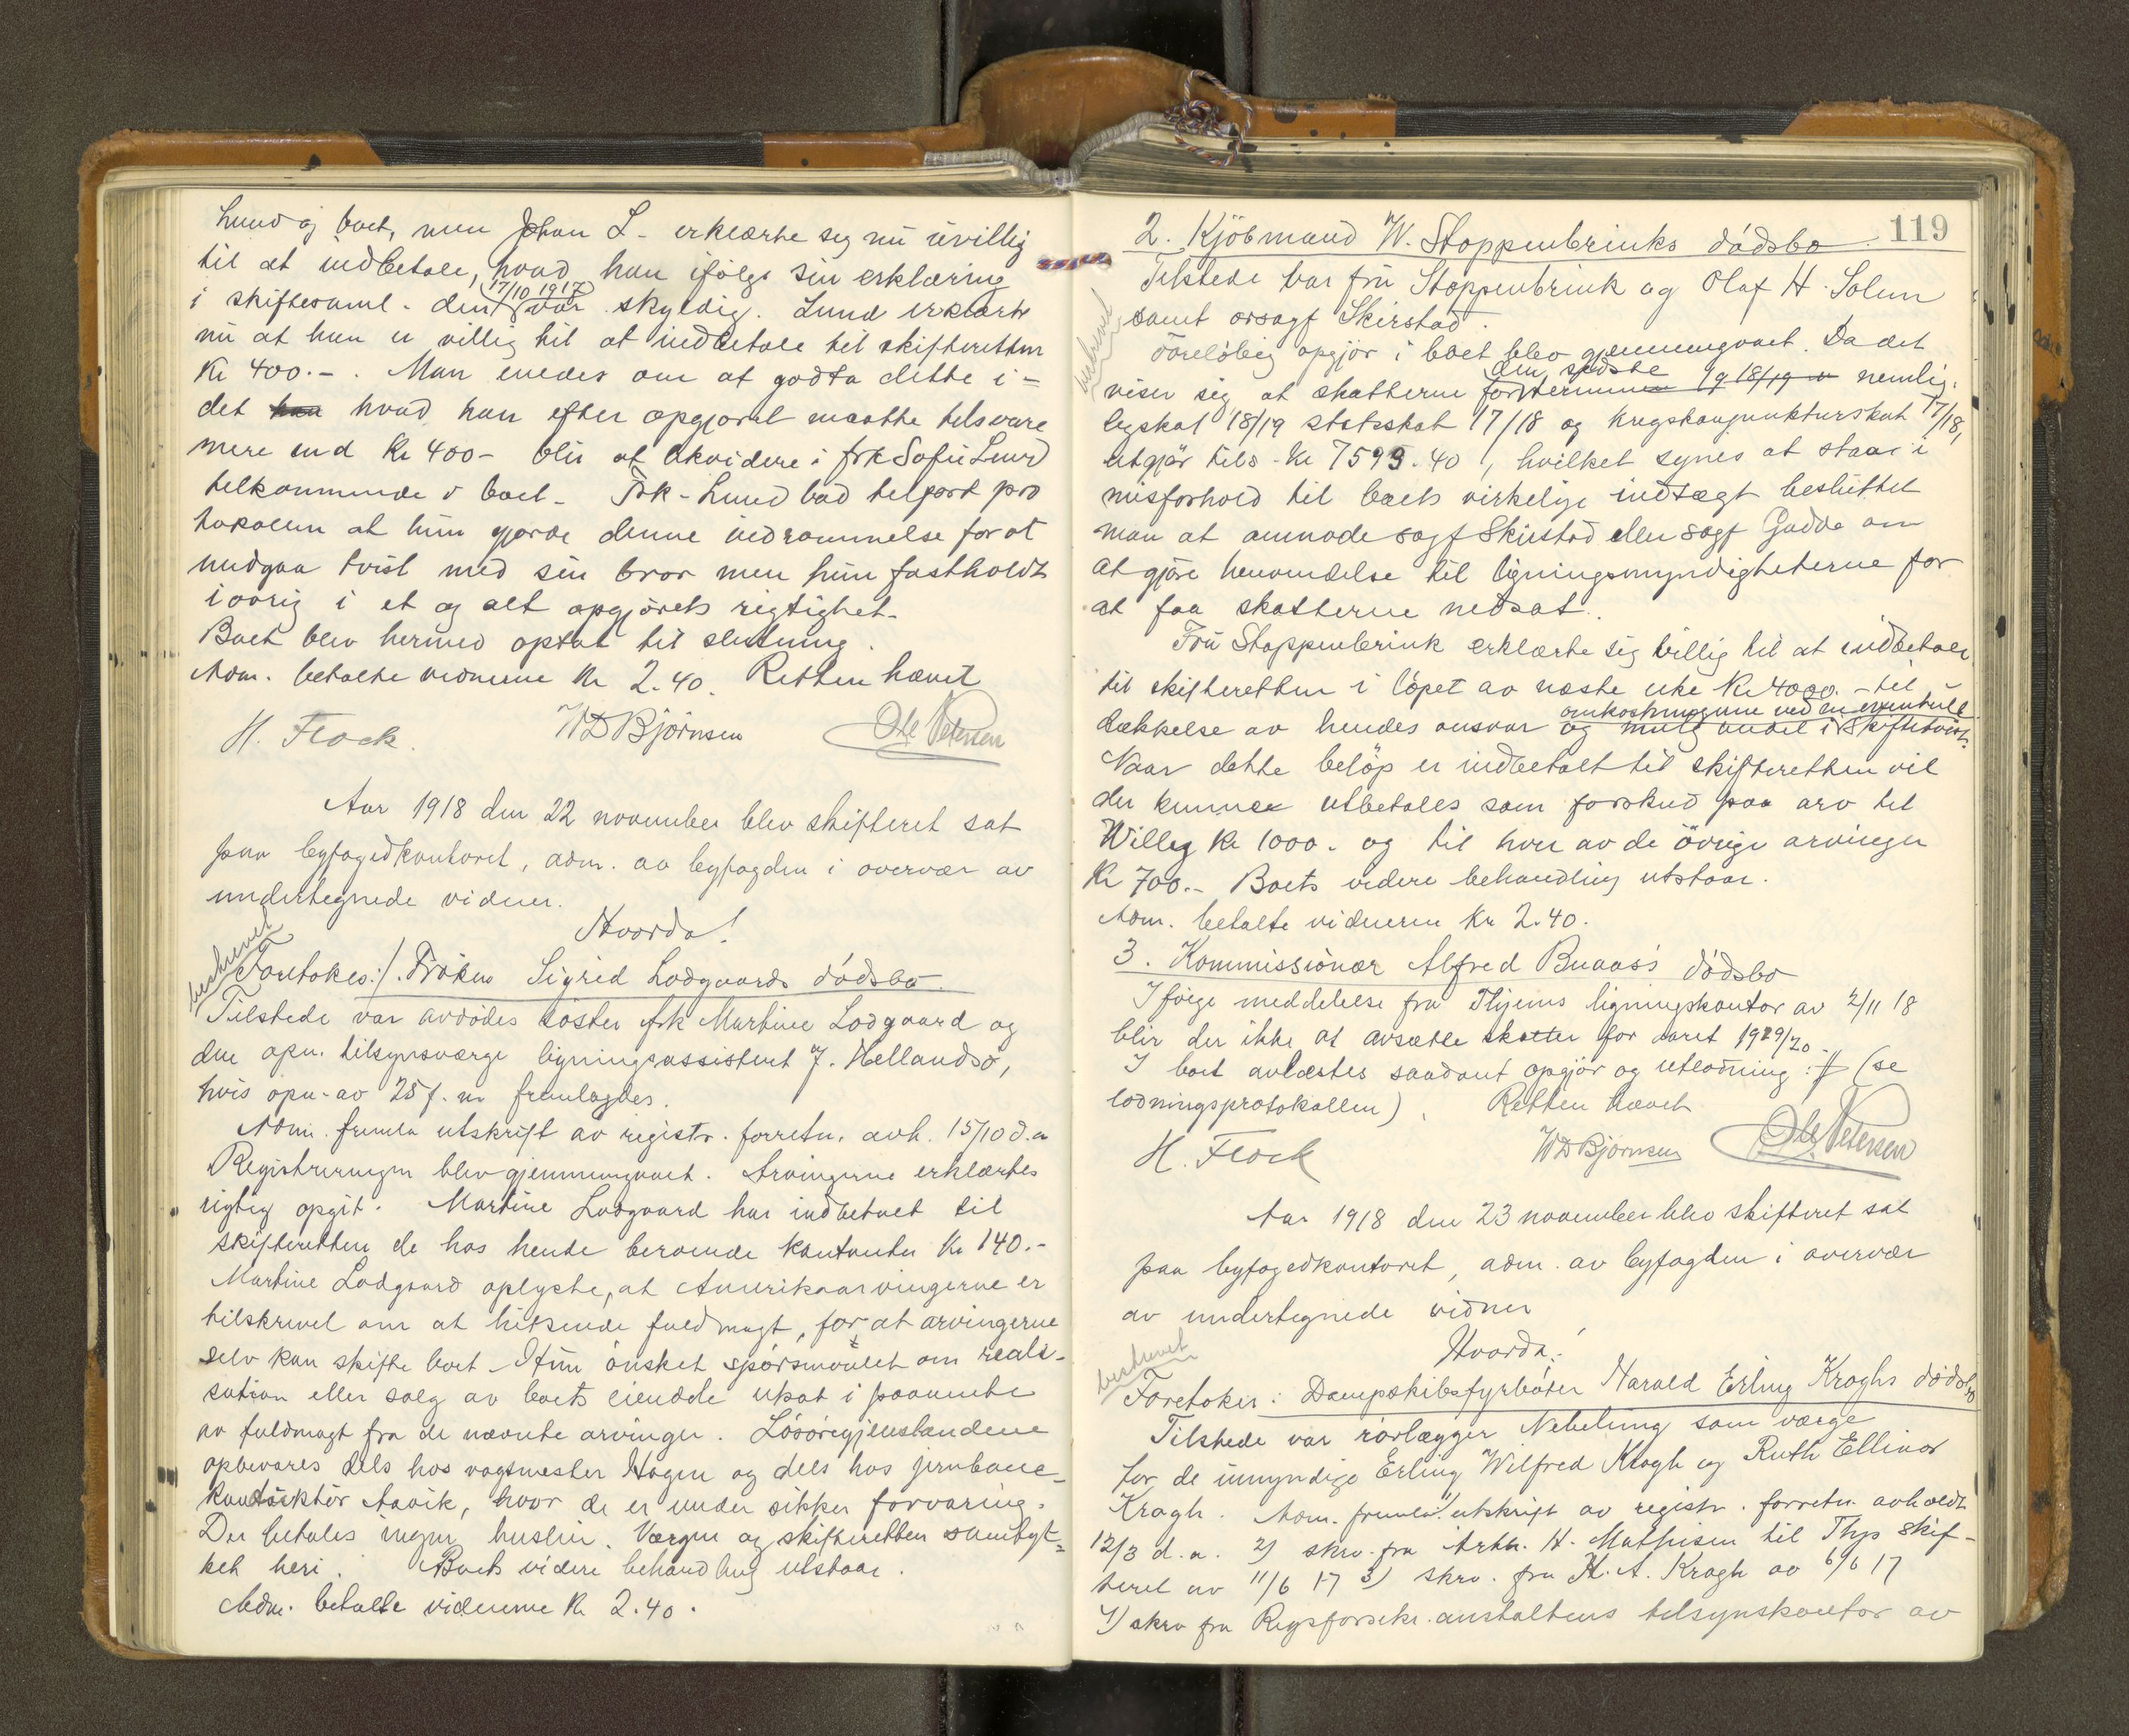 Lund og boet, men Johan L. erklærte seg nu uvillig
til at indbetale, hvad han ifølge sin erklæring
i skiftesaml. den 17/10 1917 var skyldig. Lund erklærte
nu at han er villig til at indbetale til skifteretten
Kr 400.-. Man enedes om at godta dette i-
det han hvad han efter opgjøret maatte tilsvare
mere end Kr 400- blir at likvidere i frk Sofie Lunds
tilkommende i boet. Frk. Lund bad tilført pro
tokollen at hun gjorde denne indrømmelse for at
undgaa tvist med sin bror men hun fastholdt
iøvrig i et og alt opgjørets rigtighet.
Boet blev hermed optat til slutning.
Adm. betalte vidnerne Kr 2.40. Retten hævet
H. Flock. WDBjörnsen Ole Petersen
Aar 1918 den 22 november blev skifteret sat
paa byfogedkontoret, adm. av byfogden i overvær av
undertegnede vidner.
Hvorda!
beskrevet
Foretokes: 1. Frøken Sigrid Lodgaards dødsbo.
Tilstede var avdødes søster frk Martine Lodgaard og
den opn. tilsynsværge ligningsassistent J. Hellandsø,
hvis opn. av 25 f. m. fremlagdes.
Adm. fremla utskrift av registr. forretn. avh. 15/10 d.a.
Registreringen blev gjennemgaaet. Arvingerne erklærtes
rigtig opgit. Martine Lodgaard har indbetalt til
skifteretten de hos hende beroende kontanter Kr 140.-
Martine Lodgaard oplyste, at Amerikaarvingerne er
tilskrevet om at hitsende fuldmagt, for at arvingerne
selv kan skifte boet. Hun ønsket spørsmaalet om reali-
sation eller salg av boets eiendele utsat i paavente
av fuldmagt fra de nævnte arvinger. Løsøregjenstandene
opbevares dels hos vognmester Hagen og dels hos jernbane-
konduktør Aavik, hvor de er under sikker forvaring.
Der betales ingen husleie. Værgen og skifteretten samtyk-
ket heri. Boets videre behandling utstaar.
Adm. betalte vidnerne Kr 2.40.
119
2. Kjöbmand W. Stoppenbrinks dödsbo.
beskrevet
Tilstede var fru Stoppenbrink og Olaf H. Solem
samt orsagf Skirstad.
Foreløbig opgjör i boet blev gjennemgaaet. Da det
viser sig at skatterne for den sidste termin 1918/19 nemlig
byskat 18/19 statsskat 17/18 og krigskonjunkturskat 17/18,
utgjör tils. Kr 7593.40, hvilket synes at staa i
misforhold til boets virkelige indtægt besluttet
man at anmode sagf Skirstad eller sagf Gadde om
at gjøre henvendelse til ligningsmyndigheterne for
at faa skatterne nedsat.
Fru Stoppenbrink erklærte sig villig til at indbetale
til skifteretten i løpet av næste uke Kr 4000.- til
dækkelse av hendes ansvar og mulig andel i omkostningerne ved en eventuell skiftetvist.
Naar dette beløp er indbetalt til skifteretten vil
der kunne utbetales som forskud paa arv til
Willy Kr 1000.- og til hver av de övrige arvinger
Kr 700.- Boets videre behandling utstaar.
Adm. betalte vidnerne Kr 2.40.
3. Kommissionær Alfred Buaas's dödsbo
Ifølge meddelelse fra Thjems ligningskontor av 2/11 18
blir der ikke at avsætte skatter for aaret 1919/20.
I boet avlæstes saadant opgjör og utlodning: # (se
lodningsprotokollen). Retten hævet
H. Flock WDBjörnsen Ole Petersen
Aar 1918 den 23 november blev skifteret sat
paa byfogedkontoret, adm. av byfogden i overvær
av undertegnede vidner
Hvorda:
beskrevet
Foretokes: Dampskibsfyrbøter Harald Erling Kraghs dødsbo
Tilstede var rørlægger Nebelung som værge
for de umyndige Erling Wilfred Kragh og Ruth Ellinor
Kragh. Adm. fremla: 1) utskrift av registr. forretn. avholdt
12/3 d.a. 2) skr. fra Arkt. H. Mathisen til Thjs skif-
teret av 11/6 17 3) skr. fra H. A. Kragh av 6/6 17
4) skr fra Rigsforsikr.anstaltens tilsynskontor av